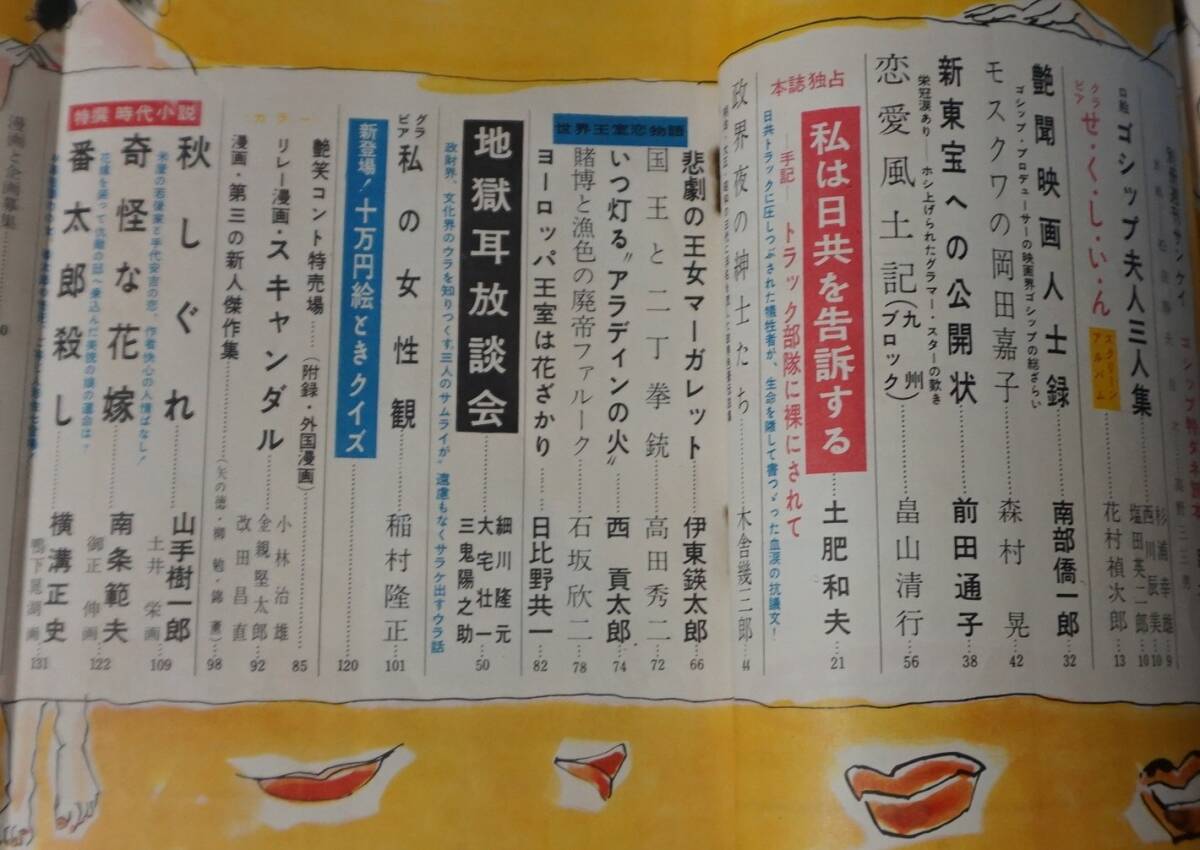 口絵 ゴシップ夫人三人集
杉浦幸雄 9
西川辰美 10
塩田英二郎 10
グラビア せ・く・し・い・ん スクリーンアルバム 花村禎次郎 13
艶聞映画人士録 南部僑一郎 32
ゴシップ・プロデューサーの映画界ゴシップの総ざらい
モスクワの岡田嘉子 森村晃 42
新東宝への公開状 前田通子 38
栄冠涙あり――ホシ上げられたグラマー・スターの歎き
恋愛風土記(九州ブロック) 畠山清行 56
本誌独占
私は日共を告訴する 土肥和夫 21
――手記―― トラック部隊に裸にされて
日共トラックに圧しつぶされた犠牲者が、生命を賭して書つゞった血涙の抗議文!
政界夜の紳士たち 木舎幾三郎 44
世界王室恋物語
悲劇の王女マーガレット 伊東鍈太郎 66
国王と二丁拳銃 高田秀二 72
いつ灯る〝アラデインの火〟 西貢太郎 74
賭博と漁色の廃帝ファルーク 石坂欣二 78
ヨーロッパ王室は花ざかり 日比野共一 82
地獄耳放談会
細川隆元
大宅壮一 50
三鬼陽之助
政財界、文化界のウラを知りつくす三人のサムライが〝遠慮もなくサラケ出すウラ話
グラビア 私の女性観 稲村隆正 101
新登場! 十万円絵ときクイズ 120
艶笑コント特売場 (附録・外国漫画) 85
カラー
リレー漫画・スキャンダル
小林治雄
金親堅太郎 92
改田昌直
漫画・第三の新人傑作集 98
特撰 時代小説
秋しぐれ 山手樹一郎
土井栄画 109
奇怪な花嫁 南条範夫
御正伸画 122
番太郎殺し 横溝正史
鴨下晁湖画 131
漫画と企画募集